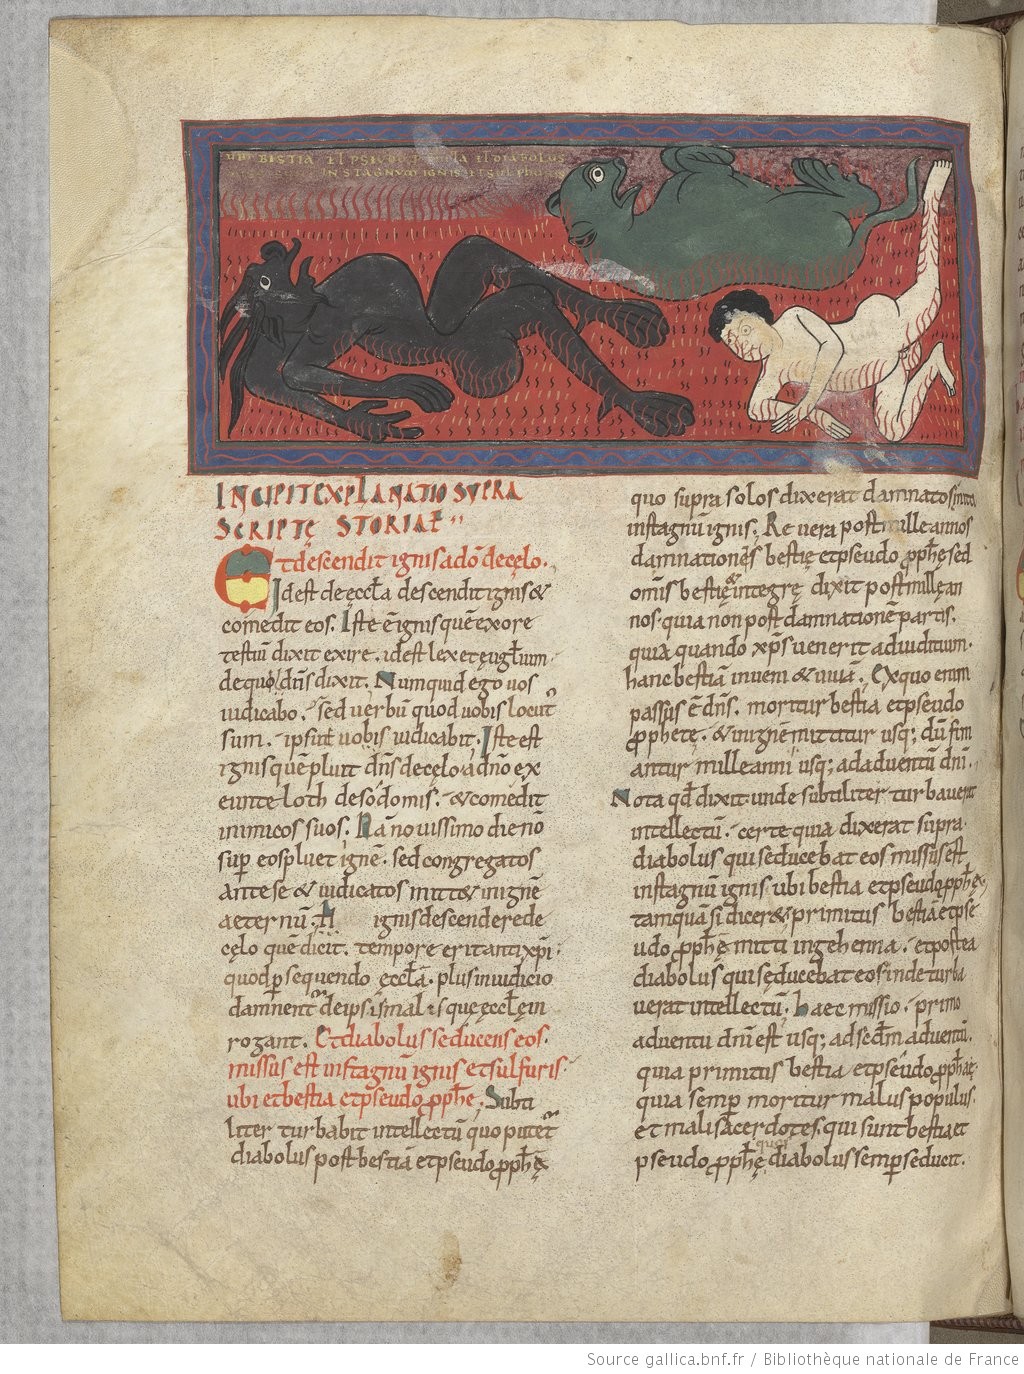 UBI BESTIA ET PSEUDO ET DIABOLUS
IN STAGNUM IGNIS ET SULPHU
INCIPIT EXPLANATIO SUPRA
SCRIPTĘ STORIAE
Et descendit ignis a dō de cęlo.
Id est de ęccła descendit ignis &
comedit eos. Iste ē ignis quē ex ore
testiū dixit exire. id est lex et ęuḡlium.
de quo dn̄s dixit. Numquid ego vos
iudicabo. sed verbū quod vobis locut᷒
sum. ipsūt vobis iudicabit. Iste est
ignis quē pluit dn̄s de cęlo a dn̄o ex
eunte loth de sōdomis. & comedit
inimicos suos. Nā novissimo die nō
sup̄ eos pluet ignē. sed congregatos
ante se & iudicatos mitt& in ignē
aeternū. ignis descendere de
cęlo quē dicit. tempore erit antixp̄i.
quod p̄sequendo ęccłā. plus in iudicio
damnent᷒ de ipsis malis quę ęccłę in
rogant. Et diabolus seducens eos.
missus est in stagnū ignis et sulfuris
ubi et bestia et pseudo p̄ph̄e. Subti
liter turbabit intellectū quo putet᷒
diabolus post bestiā et pseudo p̄ph̄ę
quo supra solos dixerat damnatos mitti
in stagnū ignis. Re vera post mille annos
damnationēs bestię et pseudo p̄ph̄ę sed
om̄is bestię & integrę dixit post mille an
nos. quia non post damnationē partis.
quia quando xp̄s venerit ad iuditium.
hanc bestiā inveni & vivā. Ex quo enim
passus ē dn̄s. moritur bestia et pseudo
p̄ph̄etę. & in ignē mittitur usq; dū fini
antur mille anni usq; ad adventū dn̄i.
Nota qđ dixit. unde subtiliter turbaverit
intellectū. certe quia dixerat supra.
diabolus qui seducebat eos missus est
in stagnū ignis ubi bestia et pseudo p̄ph̄ę
tamquā si dicer& primitus bestiā et pse
udo p̄ph̄ē mitti in gehenna. et postea
diabolus qui sęducebat eos inde turba
verat intellectū. haec missio. primo
adventu dn̄i est usq; ad sed̄m adventū.
quia primitus bestia et pseudo p̄ph̄aę.
quia semp̄ moritur malus populus.
et mali sacerdotes. qui sunt bestia et
quos
pseudo p̄ph̄ę diabolus semp̄ seducit.
Source gallica.bnf.fr / Bibliothèque nationale de France